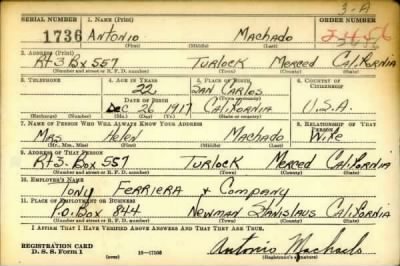 3-A
SERIAL NUMBER 1. NAME (Print) ORDER NUMBER
1736 Antonio Machado
(First) (Middle) (Last)
2. ADDRESS (Print)
Rt 3 Bx 557 Turlock Merced California
(Number and street or R. F. D. number) (Town) (County) (State)
3. TELEPHONE 4. AGE IN YEARS 5. PLACE OF BIRTH 6. COUNTRY OF CITIZENSHIP
22 San Carlos
DATE OF BIRTH (Town or county)
Dec 26 1917 California U.S.A.
(Exchange) (Number) (Mo.) (Day) (Yr.) (State or country)
7. NAME OF PERSON WHO WILL ALWAYS KNOW YOUR ADDRESS 8. RELATIONSHIP OF THAT PERSON
Mrs Helen Machado Wife
(Mr., Mrs., Miss) (First) (Middle) (Last)
9. ADDRESS OF THAT PERSON
Rt 3- Box 557 Turlock Merced California
(Number and street or R. F. D. number) (Town) (County) (State)
10. EMPLOYER'S NAME
Tony Ferriera & Company
11. PLACE OF EMPLOYMENT OR BUSINESS
P.O. Box 844 Newman Stanislaus California
(Number and street or R. F. D. number) (Town) (County) (State)
I AFFIRM THAT I HAVE VERIFIED ABOVE ANSWERS AND THAT THEY ARE TRUE.
REGISTRATION CARD
D. S. S. Form 1 (over) Antonio Machado
(Registrant's signature)